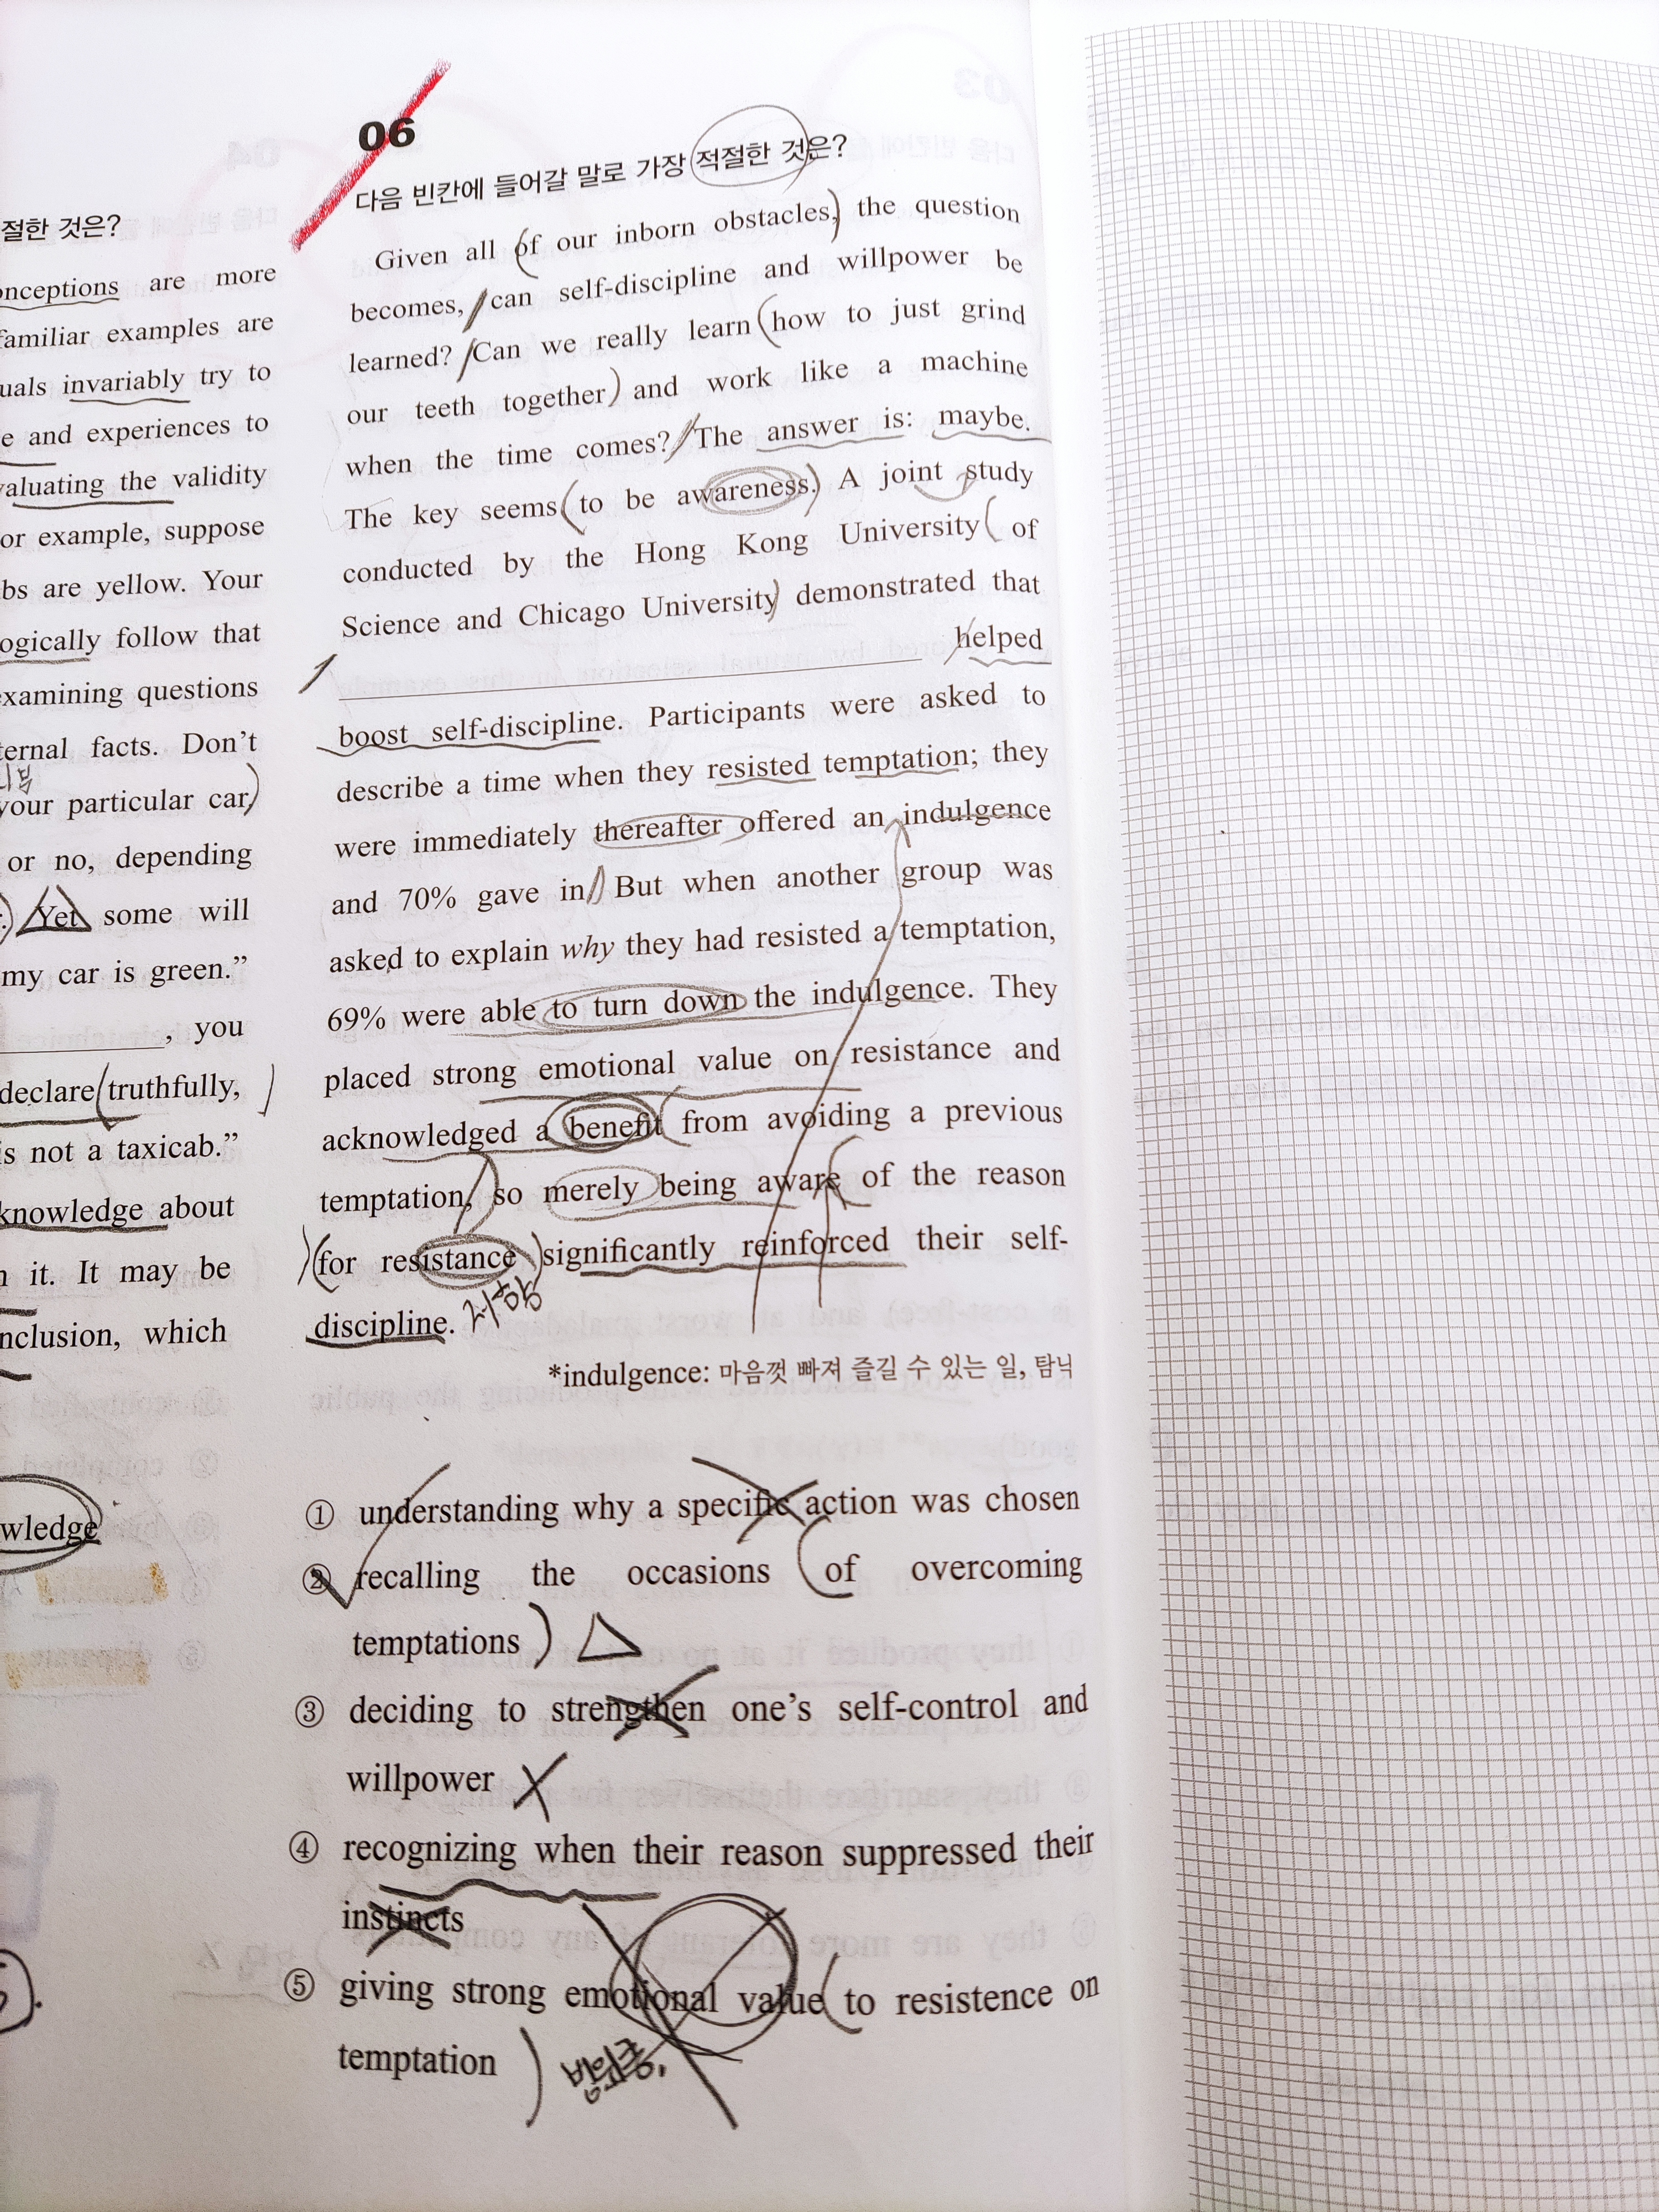 절한 것은?
onceptions are more
familiar examples are
uals invariably try to
e and experiences to
valuating the validity
or example, suppose
bs are yellow. Your
ogically follow that
examining questions
ternal facts. Don't
your particular car,
or no, depending
Yet some will
my car is green."
, you
declare truthfully,
is not a taxicab."
knowledge about
n it. It may be
nclusion, which
wledge
06
다음 빈칸에 들어갈 말로 가장 적절한 것은?
Given all of our inborn obstacles, the question
becomes, can self-discipline and willpower be
learned? Can we really learn how to just grind
our teeth together and work like a machine
when the time comes? The answer is: maybe.
The key seems to be awareness. A joint study
conducted by the Hong Kong University of
Science and Chicago University demonstrated that
helped
boost self-discipline. Participants were asked to
describe a time when they resisted temptation; they
were immediately thereafter offered an indulgence
and 70% gave in. But when another group was
asked to explain why they had resisted a temptation,
69% were able to turn down the indulgence. They
placed strong emotional value on resistance and
acknowledged a benefit from avoiding a previous
temptation, so merely being aware of the reason
for resistance significantly reinforced their self-
discipline. 저항
*indulgence: 마음껏 빠져 즐길 수 있는 일, 탐닉
① understanding why a specific action was chosen
② recalling the occasions of overcoming
temptations
③ deciding to strengthen one's self-control and
willpower
④ recognizing when their reason suppressed their
instincts
⑤ giving strong emotional value to resistence on
temptation